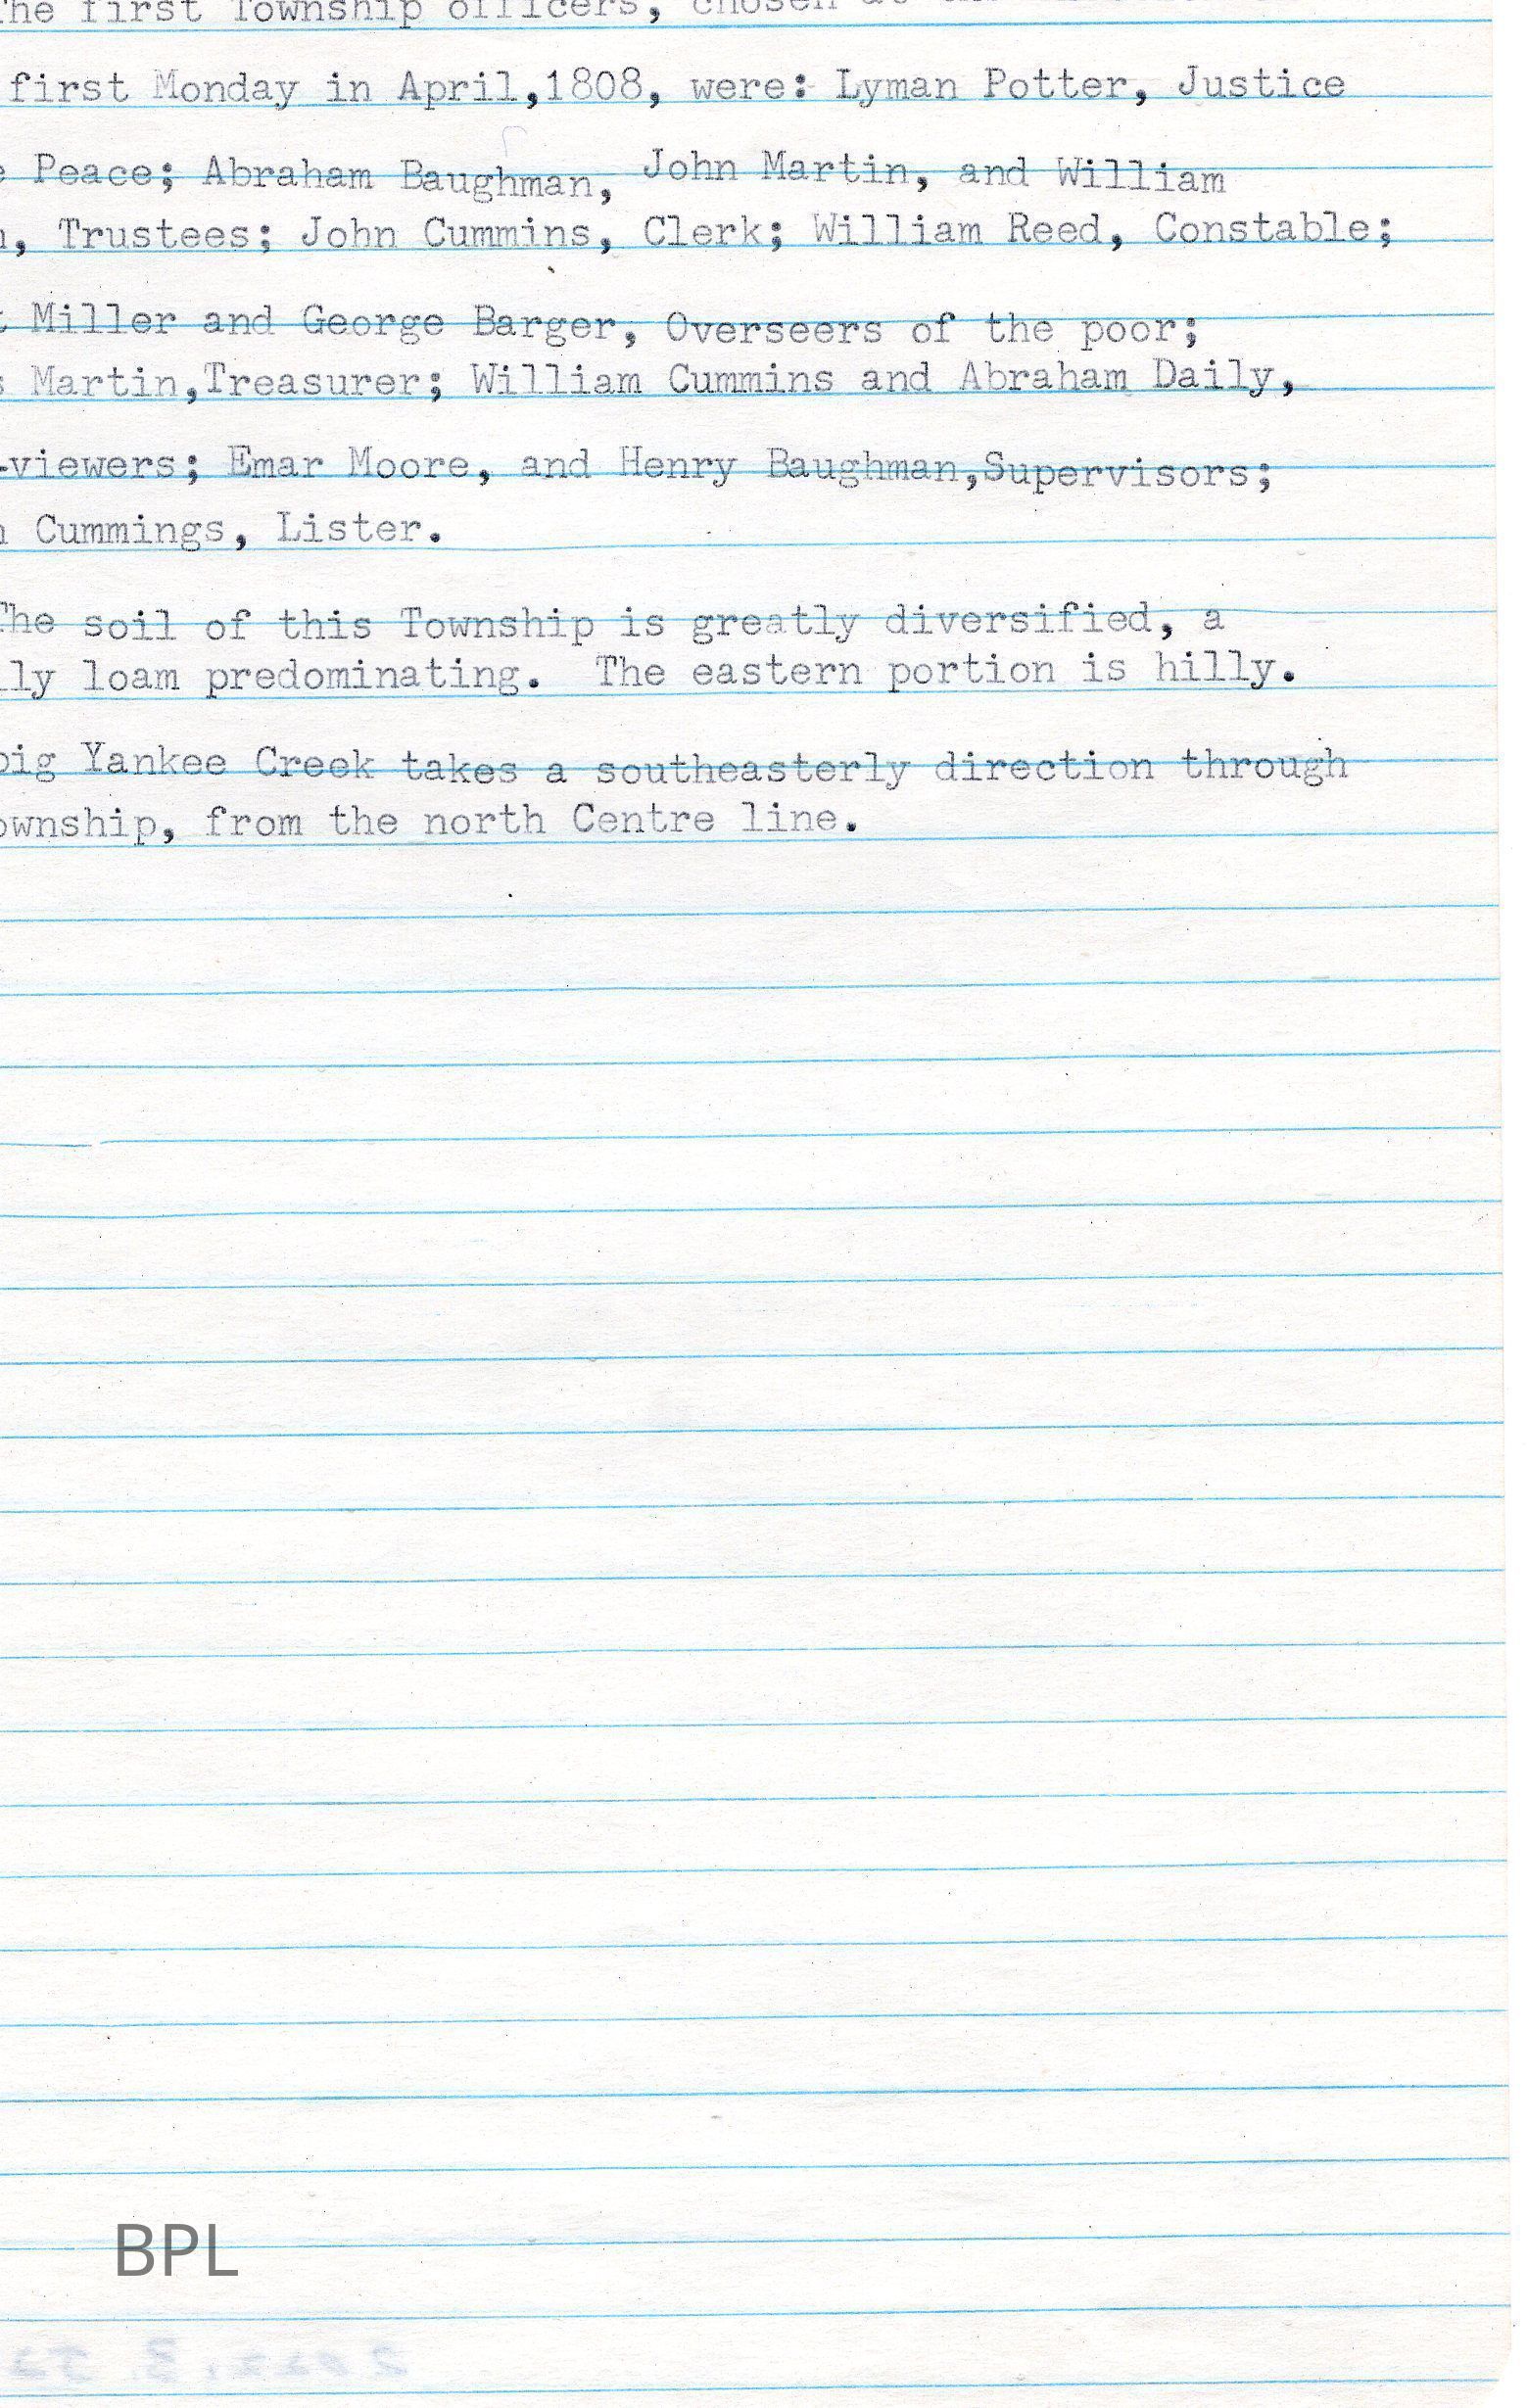 The first Township officers, chosen at
first Monday in April,1808, were: Lyman Potter, Justice
Peace; Abraham Baughman, John Martin, and William
Trustees; John Cummins, Clerk; William Reed, Constable;
Miller and George Barger, Overseers of the poor;
Martin,Treasurer; William Cummins and Abraham Daily,
-viewers; Emar Moore, and Henry Baughman,Supervisors;
Cummings, Lister.
The soil of this Township is greatly diversified, a
lly loam predominating.  The eastern portion is hilly.
big Yankee Creek takes a southeasterly direction through
ownship, from the north Centre line.
BPL